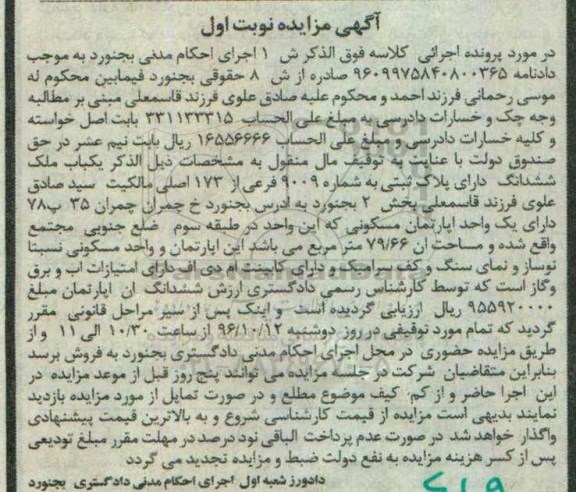 آگهی مزایده نوبت اول
در مورد پرونده اجرائی کلاسه فوق الذکر ش ۱ اجرای احکام مدنی بجنورد به موجب
دادنامه ۹۶۰۹۹۷۵۸۴۰۸۰۰۳۶۵ صادره از ش ۸ حقوقی بجنورد فیمابین محکوم له
موسی رحمانی فرزند احمد و محکوم علیه صادق علوی فرزند قاسمعلی مبنی بر مطالبه
وجه چک و خسارات دادرسی به مبلغ علی الحساب ۳۳۱۱۳۳۳۱۵ بابت اصل خواسته
و کلیه خسارات دادرسی و مبلغ علی الحساب ۱۶۵۵۶۶۶۶ ریال بابت نیم عشر در حق
صندوق دولت با عنایت به توقیف مال منقول به مشخصات ذیل الذکر یکباب ملک
ششدانگ دارای پلاک ثبتی به شماره ۹۰۰۹ فرعی از ۱۷۳ اصلی مالکیت سید صادق
علوی فرزند قاسمعلی بخش ۲ بجنورد به ادرس بجنورد خ چمران چمران ۳۵ پ۷۸
دارای یک واحد اپارتمان مسکونی که این واحد در طبقه سوم ضلع جنوبی مجتمع
واقع شده و مساحت ان ۷۹/۶۶ متر مربع می باشد این اپارتمان و واحد مسکونی نسبتا
نوساز و نمای سنگ و کف سرامیک و دارای کابینت ام دی اف دارای امتیازات اب و برق
وگاز است که توسط کارشناس رسمی دادگستری ارزش ششدانگ ان اپارتمان مبلغ
۹۵۵۹۲۰۰۰۰ ریال ارزیابی گردیده است و اینک پس از سیر مراحل قانونی مقرر
گردید که تمام مورد توقیفی در روز دوشنبه ۹۶/۱۰/۱۲ از ساعت ۱۰/۳۰ الی ۱۱ و از
طریق مزایده حضوری در محل اجرای احکام مدنی دادگستری بجنورد به فروش برسد
بنابراین متقاضیان شرکت در جلسه مزایده می توانند پنج روز قبل از موعد مزایده در
این اجرا حاضر و از کم، کیف موضوع مطلع و در صورت تمایل از مورد مزایده بازدید
نمایند بدیهی است مزایده از قیمت کارشناسی شروع و به بالاترین قیمت پیشنهادی
واگذار خواهد شد در صورت عدم پرداخت الباقی نود درصد در مهلت مقرر مبلغ تودیعی
پس از کسر هزینه مزایده به نفع دولت ضبط و مزایده تجدید می گردد
دادورز شعبه اول اجرای احکام مدنی دادگستری بجنورد